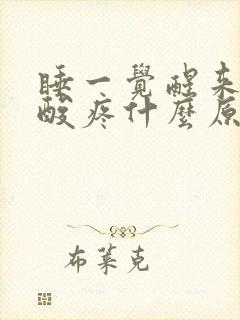 睡一覺醒来
酸疼什麼原
布莱克